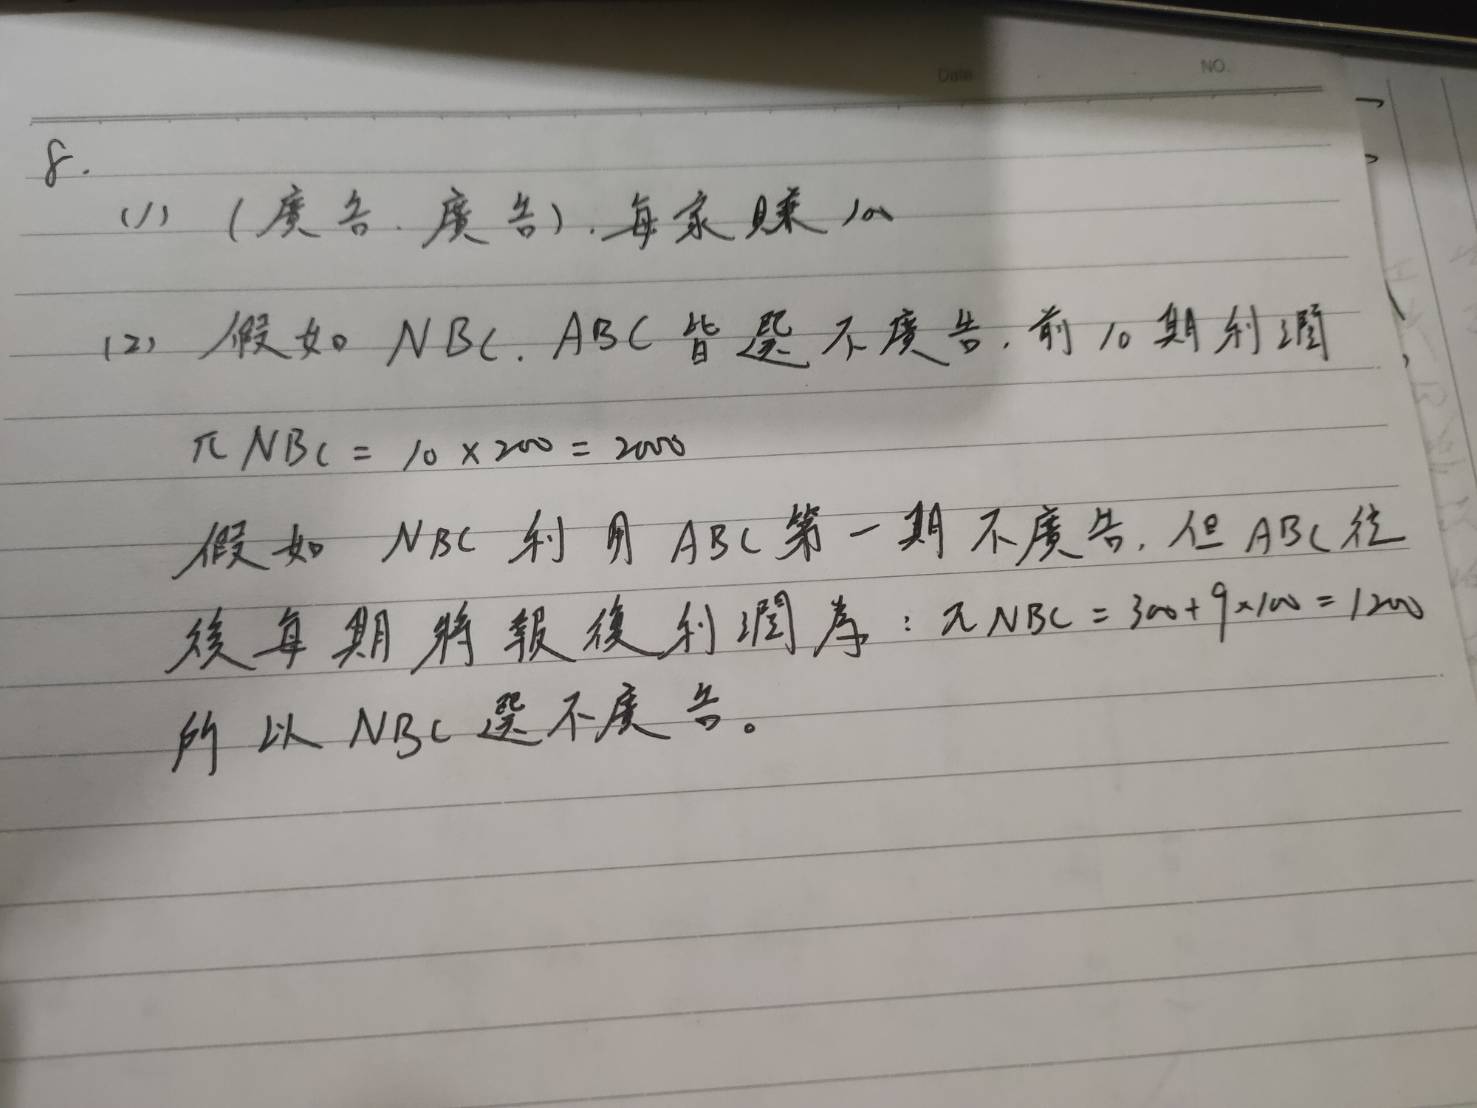 Date
NO.
8.
(1) (廣告、廣告)、每家賺100
(2) 假如 NBC、ABC 皆選不廣告、前10期利潤
πNBC = 10 × 200 = 2000
假如 NBC 利用 ABC 第一期不廣告、但 ABC 往
後每期將報復利潤為：πNBC = 300 + 9×100 = 1200
所以 NBC 選不廣告。